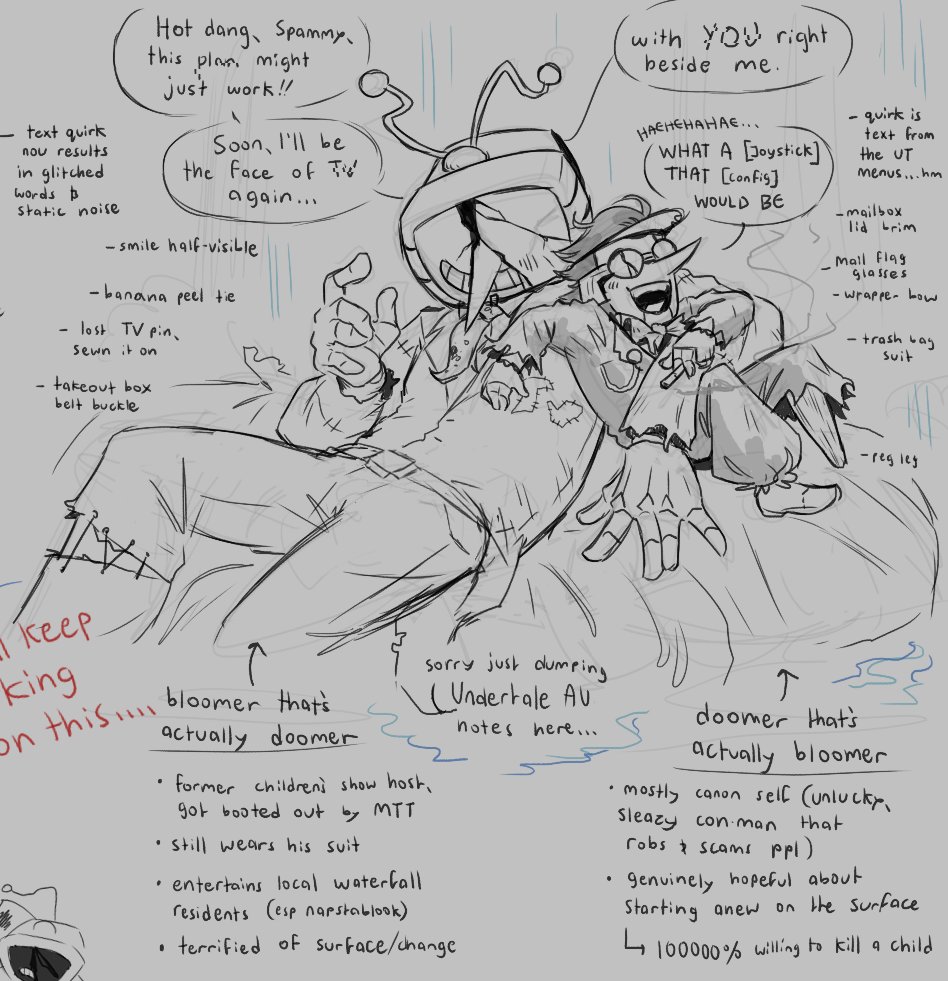 Hot dang, Spammy,
this plan might
just work!!
Soon, I'll be
the face of TV
again...
with YOU right
beside me.
HAEHEHAHAE...
WHAT A [Joystick]
THAT [config]
WOULD BE
- text quirk
now results
in glitched
words &
static noise
- smile half-visible
- banana peel tie
- lost TV pin,
sewn it on
- takeout box
belt buckle
- quirk is
text from
the UT
menus...hm
- mailbox
lid brim
- mail flag
glasses
- wrapper bow
- trash bag
suit
- peg leg
keep
king
on this....
sorry just dumping
Undertale AU
notes here...
bloomer that's
actually doomer
• former children's show host,
got booted out by MTT
• still wears his suit
• entertains local waterfall
residents (esp napstablook)
• terrified of surface/change
doomer that's
actually bloomer
• mostly canon self (unlucky,
sleazy con-man that
robs & scams ppl)
• genuinely hopeful about
starting anew on the surface
↳ 100000% willing to kill a child